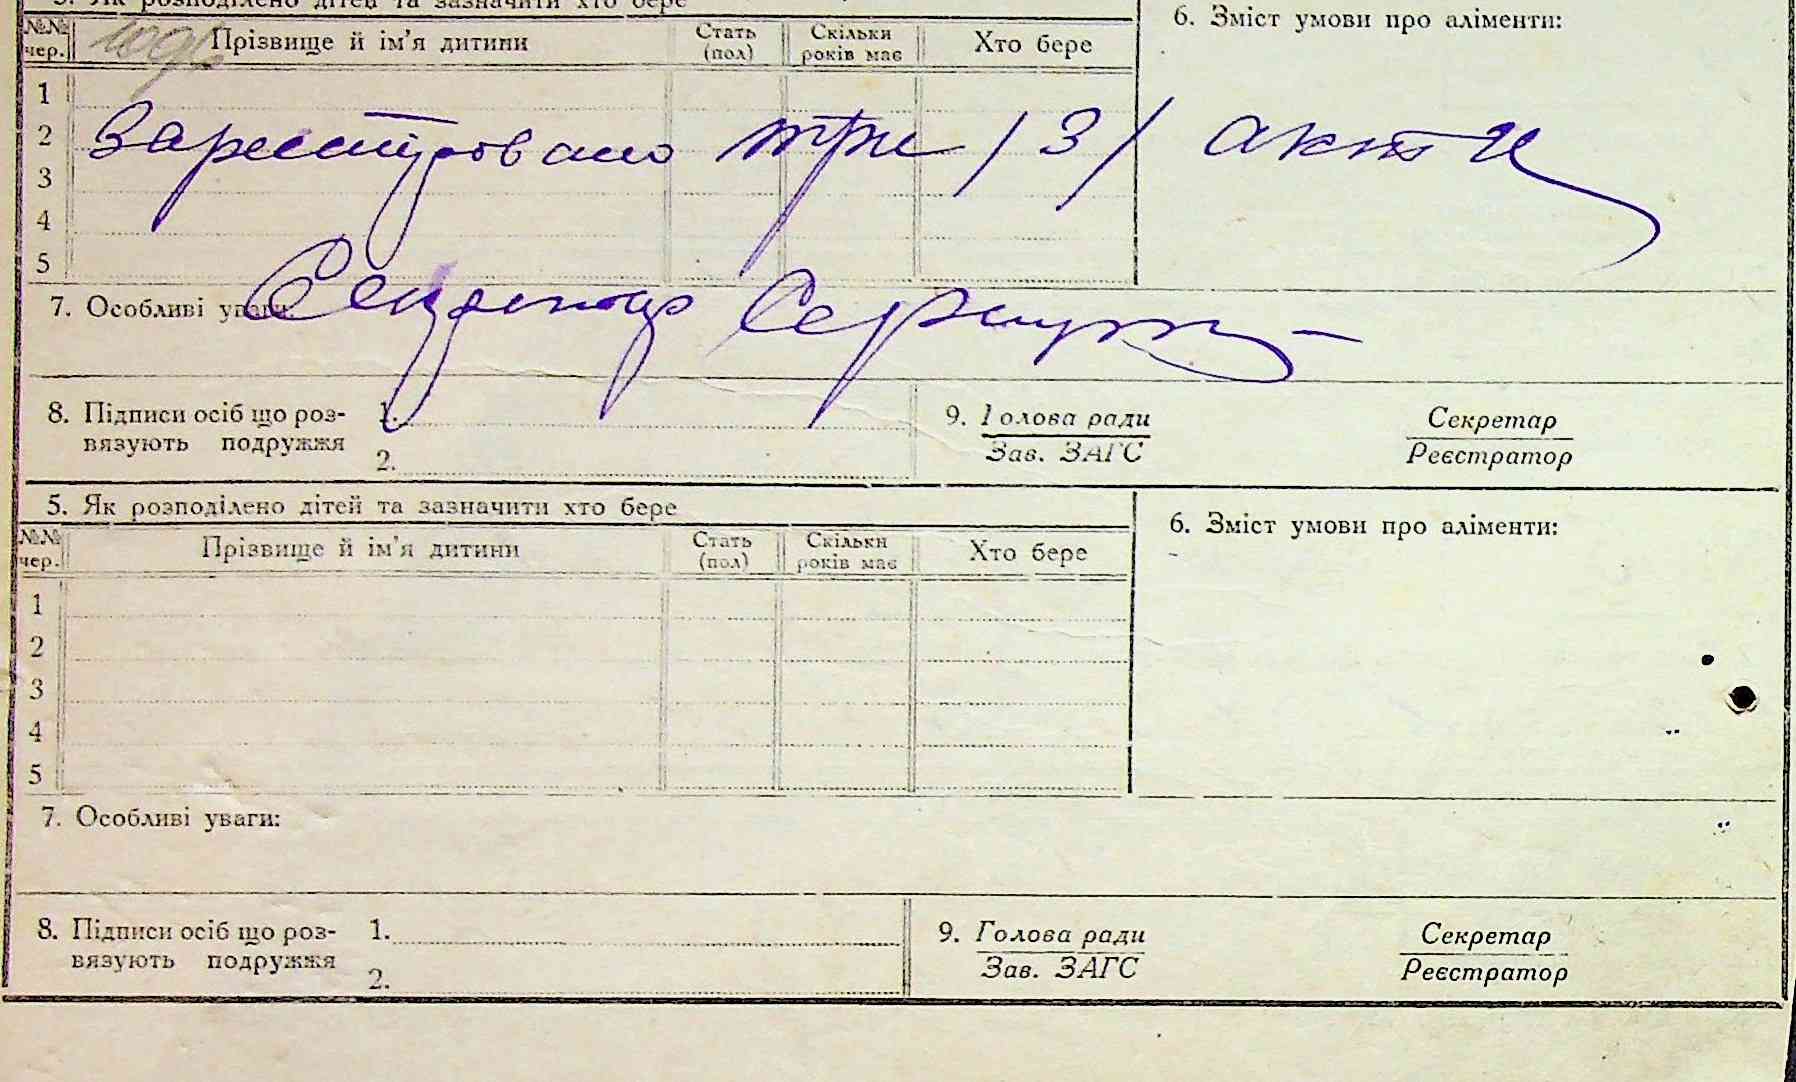 5. Як розподілено дітей та зазначити хто бере
6. Зміст умови про аліменти:
№№ чер. Прізвище й ім'я дитини Стать (пол) Скільки років має Хто бере
1
2
3
4
5
Зареєстровано три /3/ акти
Секретар
7. Особливі уваги:
8. Підписи осіб що роз-
вязують подружжя
1.
2.
9. Голова ради
Зав. ЗАГС
Секретар
Реєстратор
5. Як розподілено дітей та зазначити хто бере
6. Зміст умови про аліменти:
№№ чер. Прізвище й ім'я дитини Стать (пол) Скільки років має Хто бере
1
2
3
4
5
7. Особливі уваги:
8. Підписи осіб що роз-
вязують подружжя
1.
2.
9. Голова ради
Зав. ЗАГС
Секретар
Реєстратор